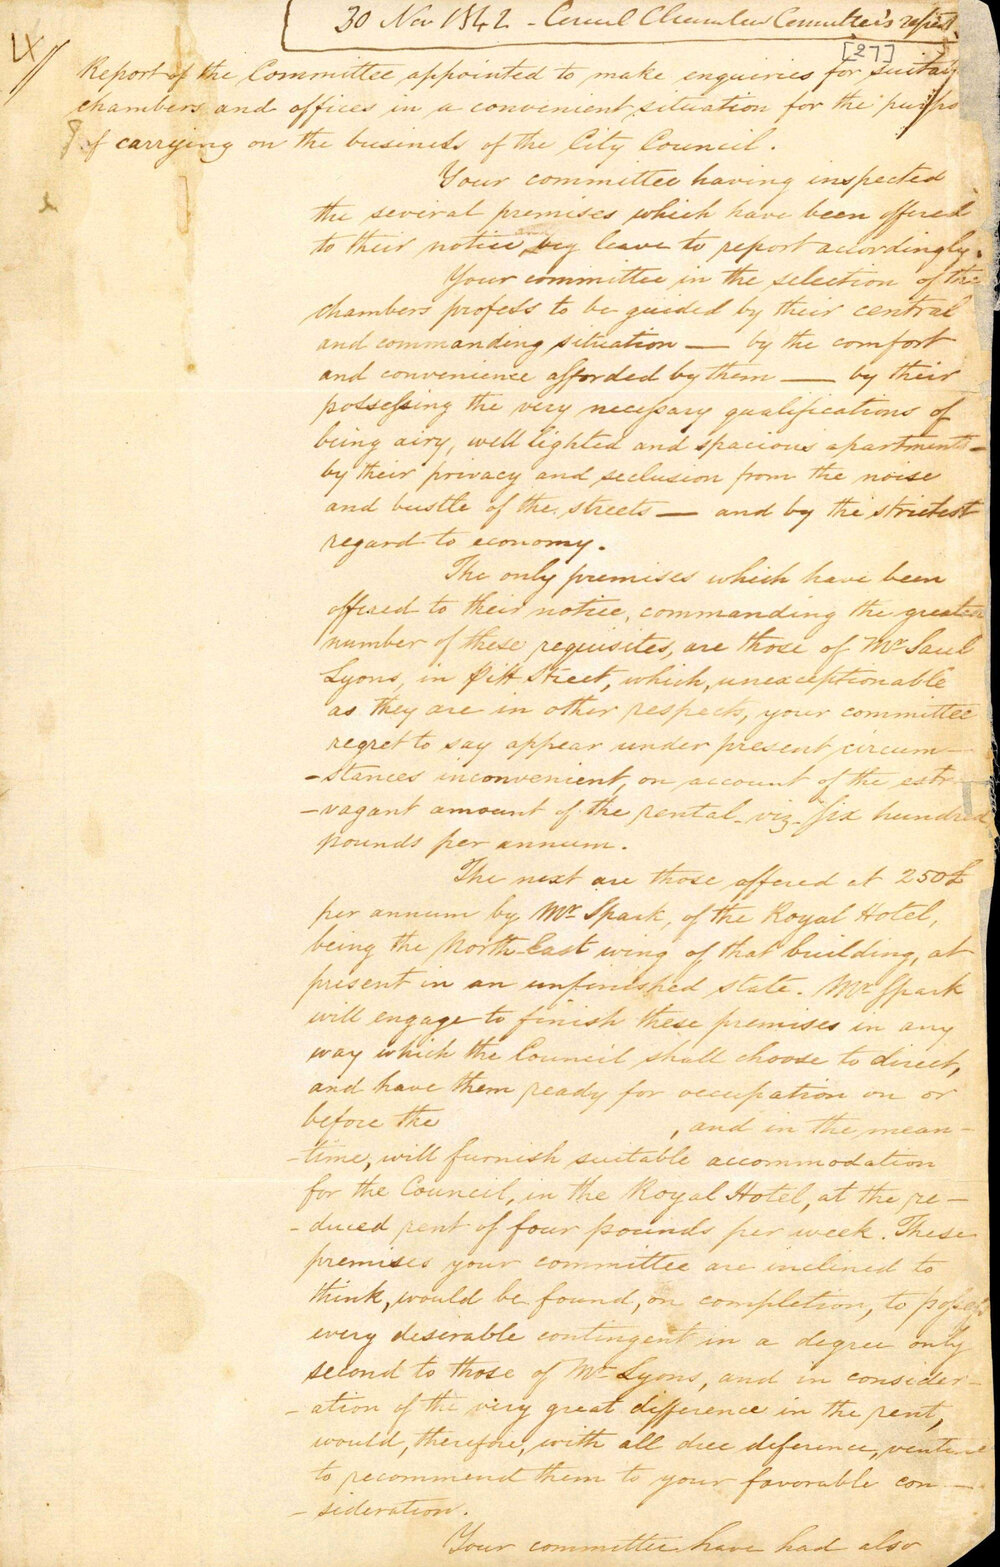 30 Nov 1842 - Council Chamber Committee's report
4
[27]
Report of the Committee appointed to make enquiries for suitab
chambers and offices in a convenient situation for the purpo
of carrying on the business of the City Council.
Your committee having inspected
the several premises which have been offered
to their notice, beg leave to report accordingly.
Your committee in the selection of the
chambers profess to be guided by their central
and commanding situation — by the comfort
and convenience afforded by them — by their
possessing the very necessary qualifications of
being airy, well lighted and spacious apartments —
by their privacy and seclusion from the noise
and bustle of the streets — and by the strictest
regard to economy.
The only premises which have been
offered to their notice, commanding the greater
number of these requisites, are those of Mr Saul
Lyons, in Pitt Street, which, unexceptionable
as they are in other respects, your committee
regret to say appear under present circum-
-stances inconvenient, on account of the extr
-vagant amount of the rental - viz - six hundred
pounds per annum.
The next are those offered at 250£
per annum by Mr Spark, of the Royal Hotel,
being the North-East wing of that building, at
present in an unfinished state. Mr Spark
will engage to finish these premises in any
way which the Council shall choose to direct,
and have them ready for occupation on or
before the , and in the mean-
-time, will furnish suitable accommodation
for the Council, in the Royal Hotel, at the re-
-duced rent of four pounds per week. These
premises your committee are inclined to
think, would be found, on completion, to possess
every desirable contingent in a degree only
second to those of Mr Lyons, and in consider-
-ation of the very great difference in the rent,
would, therefore, with all due deference, venture
to recommend them to your favorable con-
-sideration.
Your committee have had also